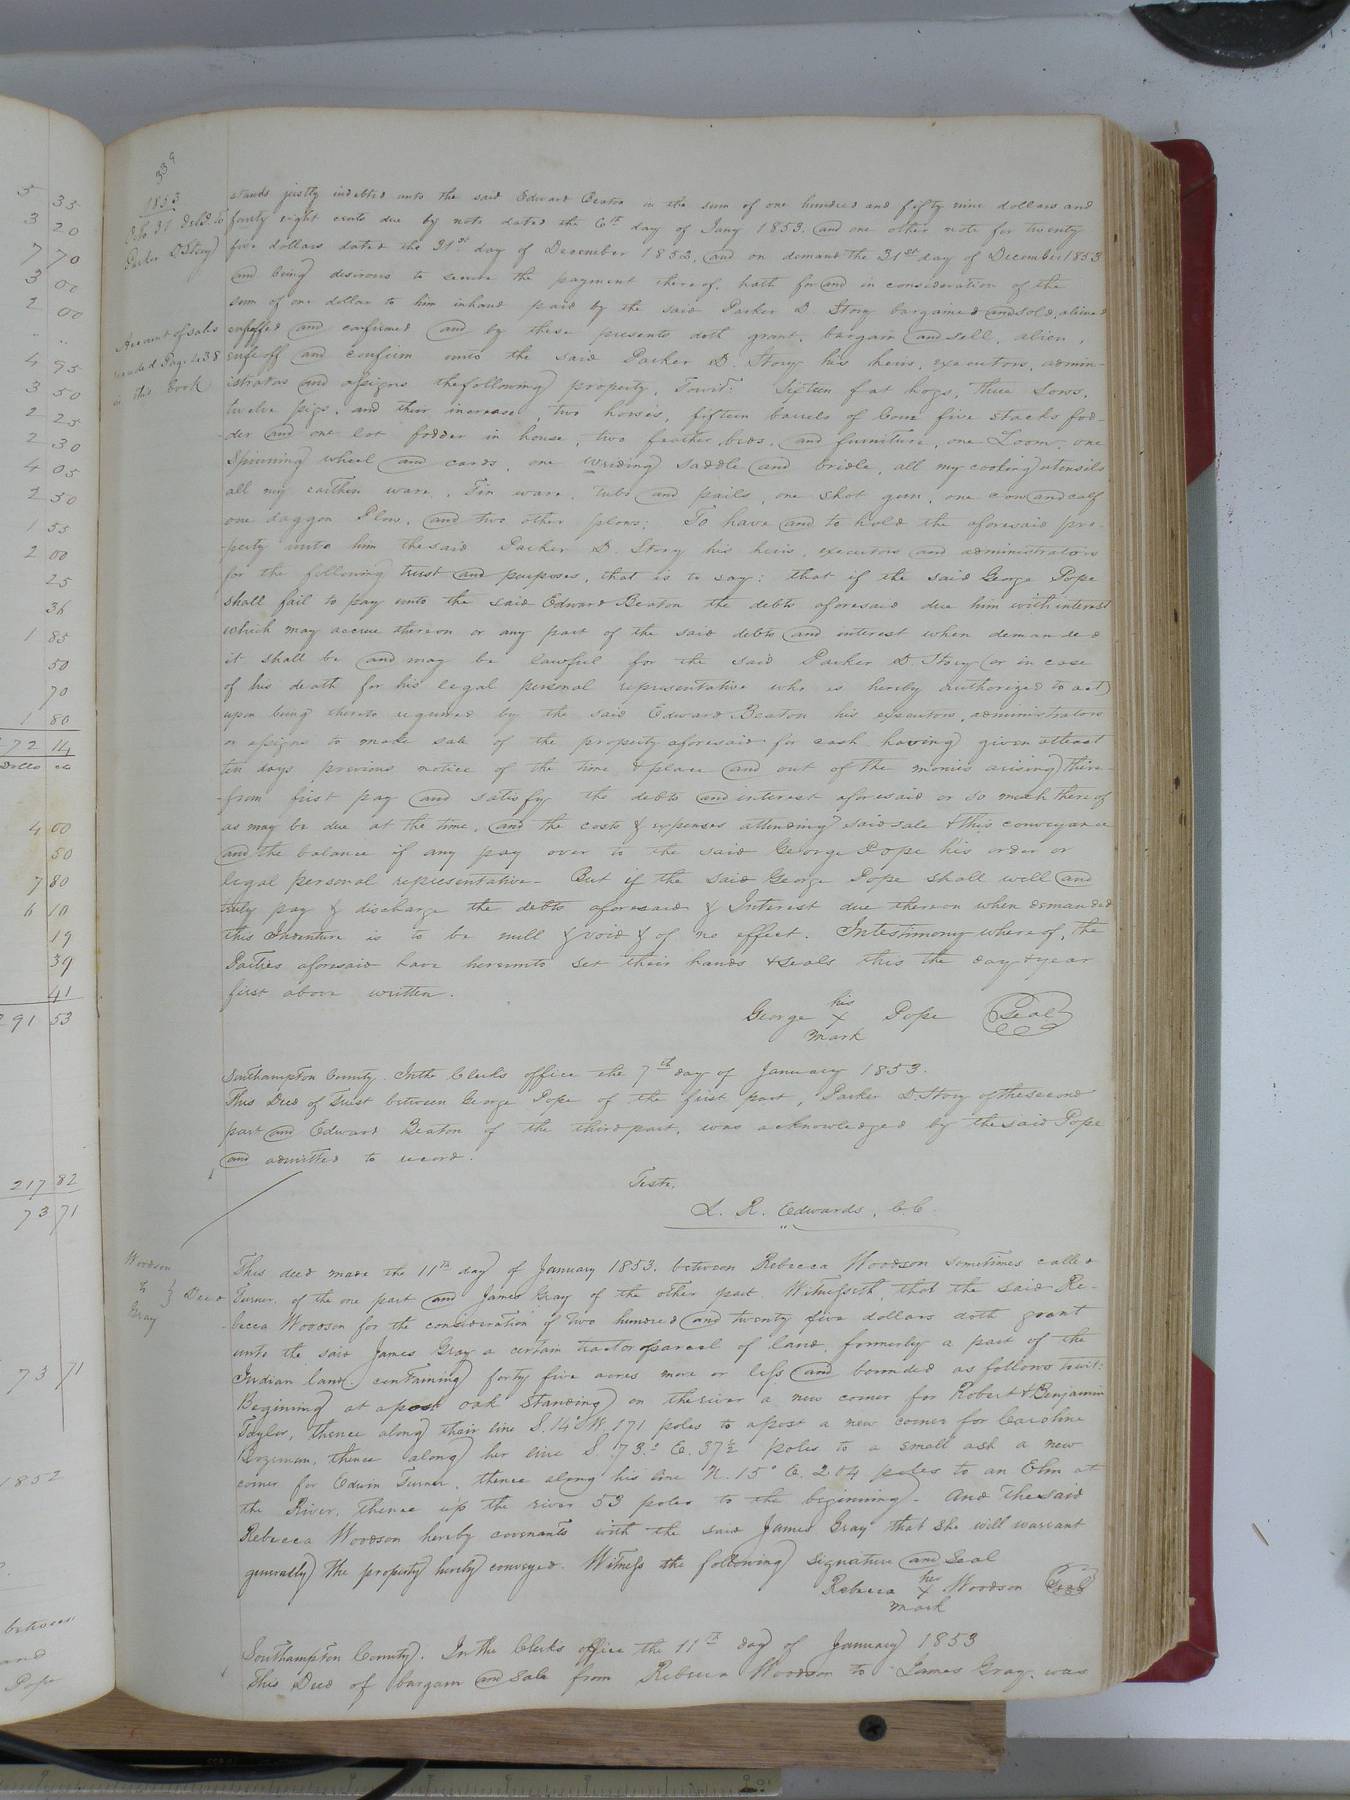 339
1853
Octo. 31 Deld. to
Parker D Story
Account of sales
recorded Page 438
in this book
stands justly indebted unto the said Edward Beaton in the sum of one hundred and fifty nine dollars and
forty eight cents due by note dated the 6th day of Jany 1853. and one other note for twenty
five dollars dated the 31st day of December 1852, and on demand the 31st day of December 1853
and being desirous to secure the payment thereof, hath for and in consideration of the
sum of one dollar to him inhand paid by the said Parker D. Story bargained and sold, aliened
enfeffed and confirmed and by these presents doth grant, bargain and sell, alien,
enfeoff and confirm unto the said Parker D. Story his heirs, executors, admin-
istrators and assigns the following property, Towit: Sixteen fat hogs, three Sows,
twelve pigs, and their increase, two horses, fifteen barrels of Corn five stacks fod-
der and one lot fodder in house, two feather beds, and furniture, one Loom, one
Spinning wheel and cards, one wriding saddle and bridle, all my cooking utensils
all my earthen ware, Tin ware, Tubs and pails, one shot gun, one cow and calf
one daggon Plow, and two other plows; To have and to hold the aforesaid pro-
-perty unto him the said Parker D. Story his heirs, executors and administrators
for the following trust and purposes, that is to say: that if the said George Pope
shall fail to pay unto the said Edward Beaton the debts aforesaid due him with interest
which may accrue thereon or any part of the said debts and interest when demanded
it shall be and may be lawful for the said Parker D. Story (or in case
of his death for his legal personal representative who is hereby authorized to act)
upon being thereto required by the said Edward Beaton his executors, administrators
or assigns to make sale of the property aforesaid for cash having given atleast
ten days previous notice of the time & place and out of the monies arising there-
-from first pay and satisfy the debts and interest aforesaid or so much there of
as may be due at the time, and the costs & expenses attending said sale & this conveyance
and the balance if any pay over to the said George Pope his order or
legal personal representative- But if the said George Pope shall well and
truly pay & discharge the debts aforesaid & Interest due thereon when demanded
this Indenture is to be null & void & of no effect. Intestimony whereof, the
Parties aforesaid have hereunto set their hands & seals this the day & year
first above written.
his
George X Pope Seal
mark
Southampton County. In the Clerks office the 7th day of January 1853.
This Deed of Trust between George Pope of the first part, Parker D. Story of the second
part and Edward Beaton of the third part, was acknowledged by the said Pope
and admitted to record.
Teste,
L. R. Edwards, C.C.
Woodson
to } Deed
Gray
This deed made the 11th day of January 1853. between Rebecca Woodson sometimes called
Turner, of the one part and James Gray of the other part. Witnesseth, that the said Re-
becca Woodson for the consideration of Two hundred and twenty five dollars doth grant
unto the said James Gray a certain tract or parcel of land, formerly a part of the
Indian land, containing forty five acres more or less and bounded as follows towit:
Beginning at a post oak standing on the river a new corner for Robert & Benjamin
Taylor, thence along their line S. 14° W. 171 poles to a post a new corner for Caroline
Bozeman, thence along her line S. 73.° E. 37½ poles to a small ash a new
corner for Edwin Turner, thence along his line N. 15° E. 204 poles to an Elm at
the River, thence up the river 53 poles to the beginning- And the said
Rebecca Woodson hereby covenants with the said James Gray that she will warrant
generally the property hereby conveyed. Witness the following signature and seal
her
Rebecca X Woodson Seal
mark
Southampton County. In the Clerks office the 11th day of January 1853
This Deed of bargain and Sale from Rebecca Woodson to James Gray, was
5 35
3 20
7 70
3 00
2 00
4 95
3 50
2 25
2 30
4 05
2 50
1 55
2 00
25
36
1 85
50
70
1 80
72 14
Dolls cts
4 00
50
7 80
6 10
19
39
41
291 53
217 82
73 71
73 71
1852
between
and
Pope